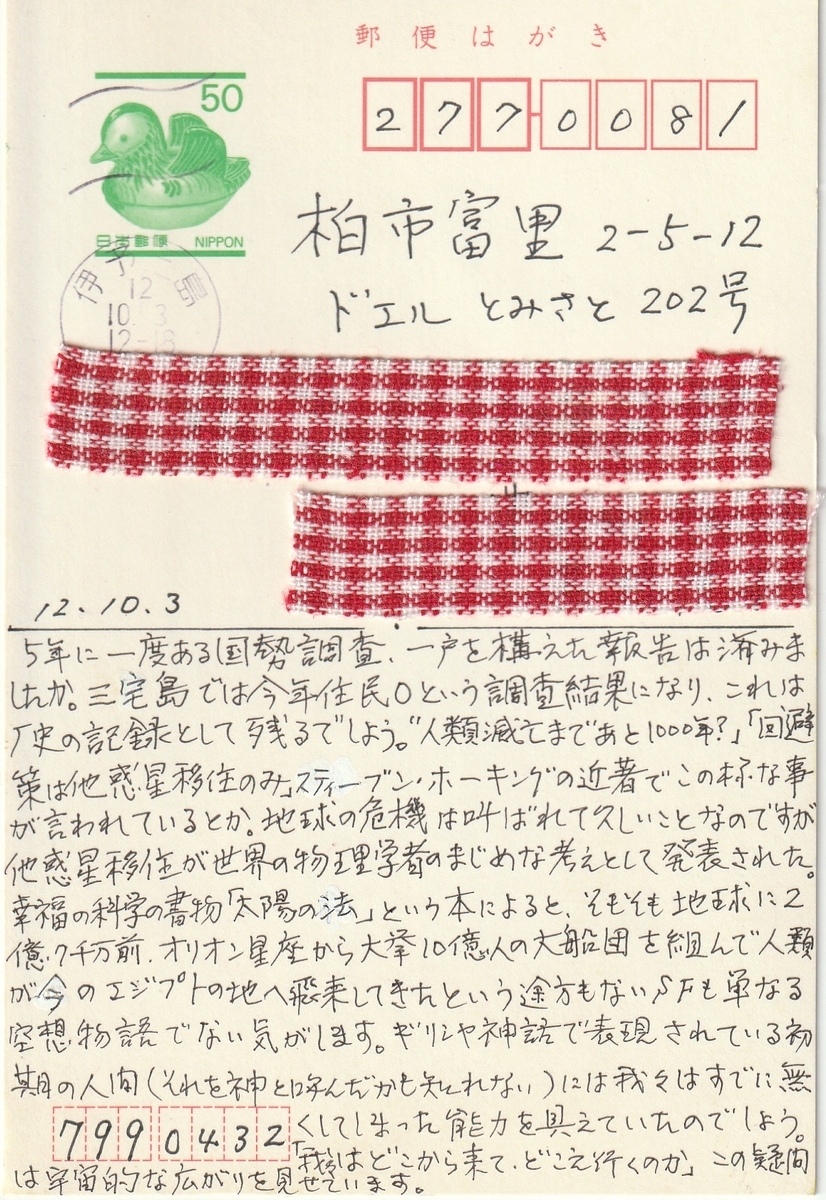 郵便はがき
50
日本郵便 NIPPON
277-0081
柏市富里 2-5-12
ドエル とみさと 202号
伊予三島
12
10.3
12-18
12.10.3
5年に一度ある国勢調査、一戸を構えた報告は済みま
したか。三宅島では今年住民0という調査結果になり、これは
歴史の記録として残るでしょう。“人類滅亡まであと1000年?」「回避
策は他惑星移住のみ」スティーブン・ホーキングの近著でこの様な事
が言われているとか。地球の危機は叫ばれて久しいことなのですが
他惑星移住が世界の物理学者のまじめな考えとして発表された。
幸福の科学の書物「太陽の法」という本によると、そもそも地球に2
億7千万前、オリオン星座から大挙10億人の大船団を組んで人類
が今のエジプトの地へ飛来してきたという途方もないSFも単なる
空想物語でない気がします。ギリシャ神話で表現されている初
期の人間(それを神と呼んだかも知れない)には我々はすでに無
くしてしまった能力を具えていたのでしょう。
799 0432
「我々はどこから来て、どこえ行くのか」この疑問
は宇宙的な広がりを見せています。